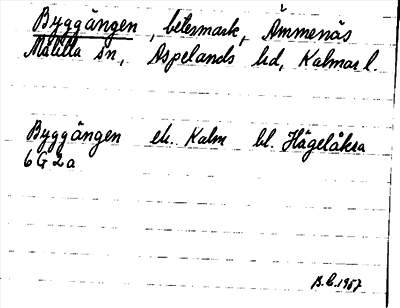 Byggängen, betesmark, Ämmenäs
Målilla sn, Aspelands hd, Kalmar l.
Byggängen ek. Kalm bl. Hägelåkra
6G2a
B.E. 1967